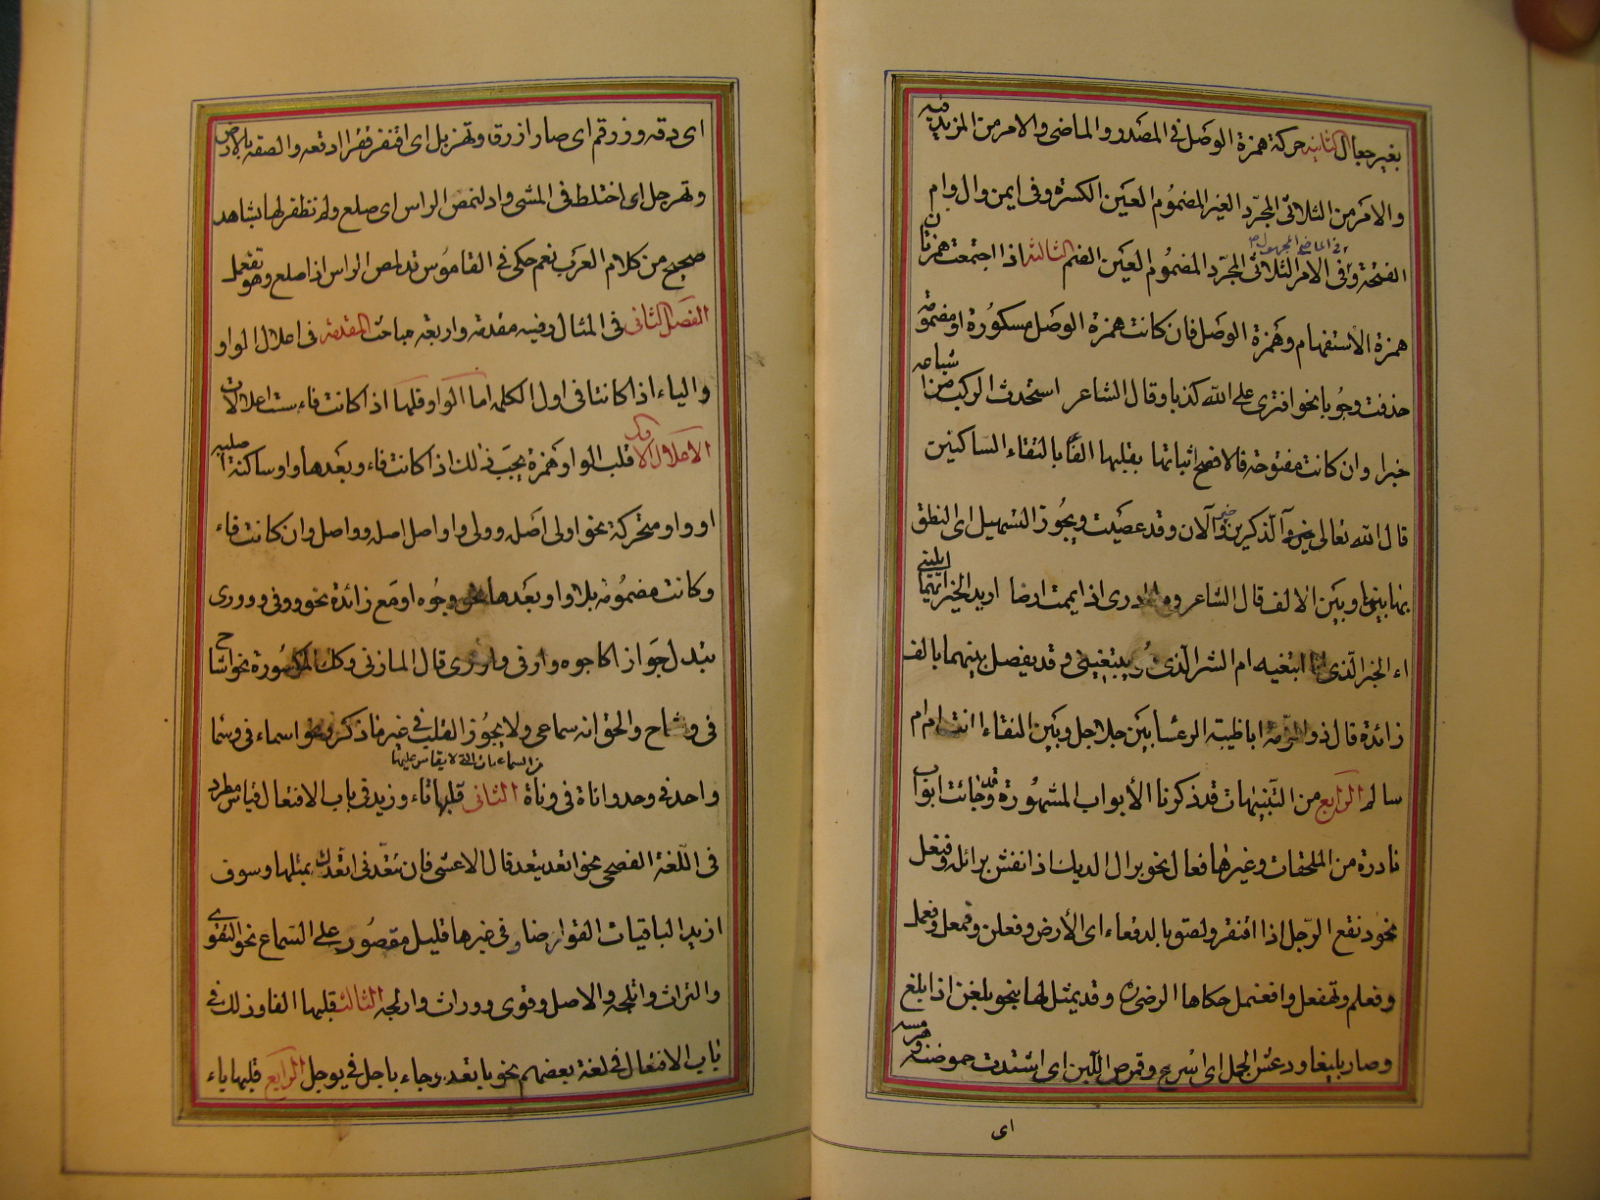 بغير جعال الثانية حركة همزة الوصل في المصدر والماضي والامر من المزيد فيه
والامر من الثلاثي المجرد الغير المضموم العين الكسرة وفي ايمن وال وام
في الماضي المجهول و
الفتحة وفي الامر الثلاثي المجرد المضموم العين الضم الثالثة اذا اجتمعت همزتان
همزة الاستفهام وهمزة الوصل فان كانت همزة الوصل مكسورة او مضمومة
حذفت وجوبا نحو افترى على الله كذبا وقال الشاعر استحدث الركب من اشياعه
خبرا وان كانت مفتوحة فالافصح اثباتها بقلبها الفا بالتقاء الساكنين
قال الله تعالى آلذكرين وآلان وقد عصيت ويجوز التسهيل اى النطق
بها بينها وبين الالف قال الشاعر وما ادرى اذا يممت ارضا اريد الخير ايهما يلينى
اء الخير الذى انا ابتغيه ام الشر الذى يبتغينى وقد يفصل بينهما بالف
زائدة قال ذو الرمة ايا ظبية الوعسا بين جلاجل وبين النقاء اانت ام ام
سالم الرابع من التنبيهات قد ذكرنا الأبواب المشهورة وقد جائت ابواب
نادرة من الملحقات وغيرها فعال نحو برال الديك اذا نفش برائله وفنعل
نحو دنقع الرجل اذا افتقر ولصق بالدقعاء اى الأرض وفعلن وفمعل وفعمل
وفعلم وتهفعل وافعنمل حكاها الرضى ره وقد يمثل لها بنحو بلغن اذا بلغ
وصار بليغا ودعشر الجمل اى اسرع وقمرص اللبن اى اشتدت حموضته وهرمسه
اى
اى دقه وزرقم اى صار ازرق وتهزبل اى افتقر فقرا ادقعه والصقه بالارض
وتهرجل اى اختلط فى المشى وادلنمص الراس اى صلع ولم نظفر لها بشاهد
صحيح من كلام العرب نعم حكى في القاموس تدلمص الراس اذا صلع وهو تفعل
الفصل الثانى فى المثال وفيه مقدمة واربعة مباحث المقدمة فى اعلال الواو
والياء اذا كانتا فى اول الكلمة اما الواو فلها اذا كانت فاء ست اعلالات
الاعلال الاول قلب الواو همزة يجب ذلك اذا كانت فاء وبعدها واو ساكنة اصلية
او واو متحركة نحو اولى اصله وولى واواصل اصله وواصل وان كانت فاء
وكانت مضمومة بلا واو بعدها نحو وجوه او مع زائدة نحو ووفى ووورى
تبدل جوازا كاجوه واوفى واورى قال المازنى وكذا المكسورة نحو اشاح
فى وشاح والحق انه سماعى ولا يجوز القلب فى غير ما ذكر ونحو اسماء فى وسما
من السماعيات التى لا يقاس عليها
واحد فى وحد واناة فى وناة الثانى قلبها تاء وزيد فى باب الافتعال قياس مطرد
فى اللغة الفصحى نحو اتعد يتعد قال الاعشى فان تتعدنى اتعدك بمثلها وسوف
ازيد الباقيات القوارضا وفى غيرها قليل مقصور على السماع نحو التقوى
والتراث واتلجه والاصل وقوى ووراث واولجه الثالث قلبها الفا وذلك فى
باب الافتعال فى لغة بعضهم نحو ياتعد وجاء ياجل فى يوجل الرابع قلبها ياء